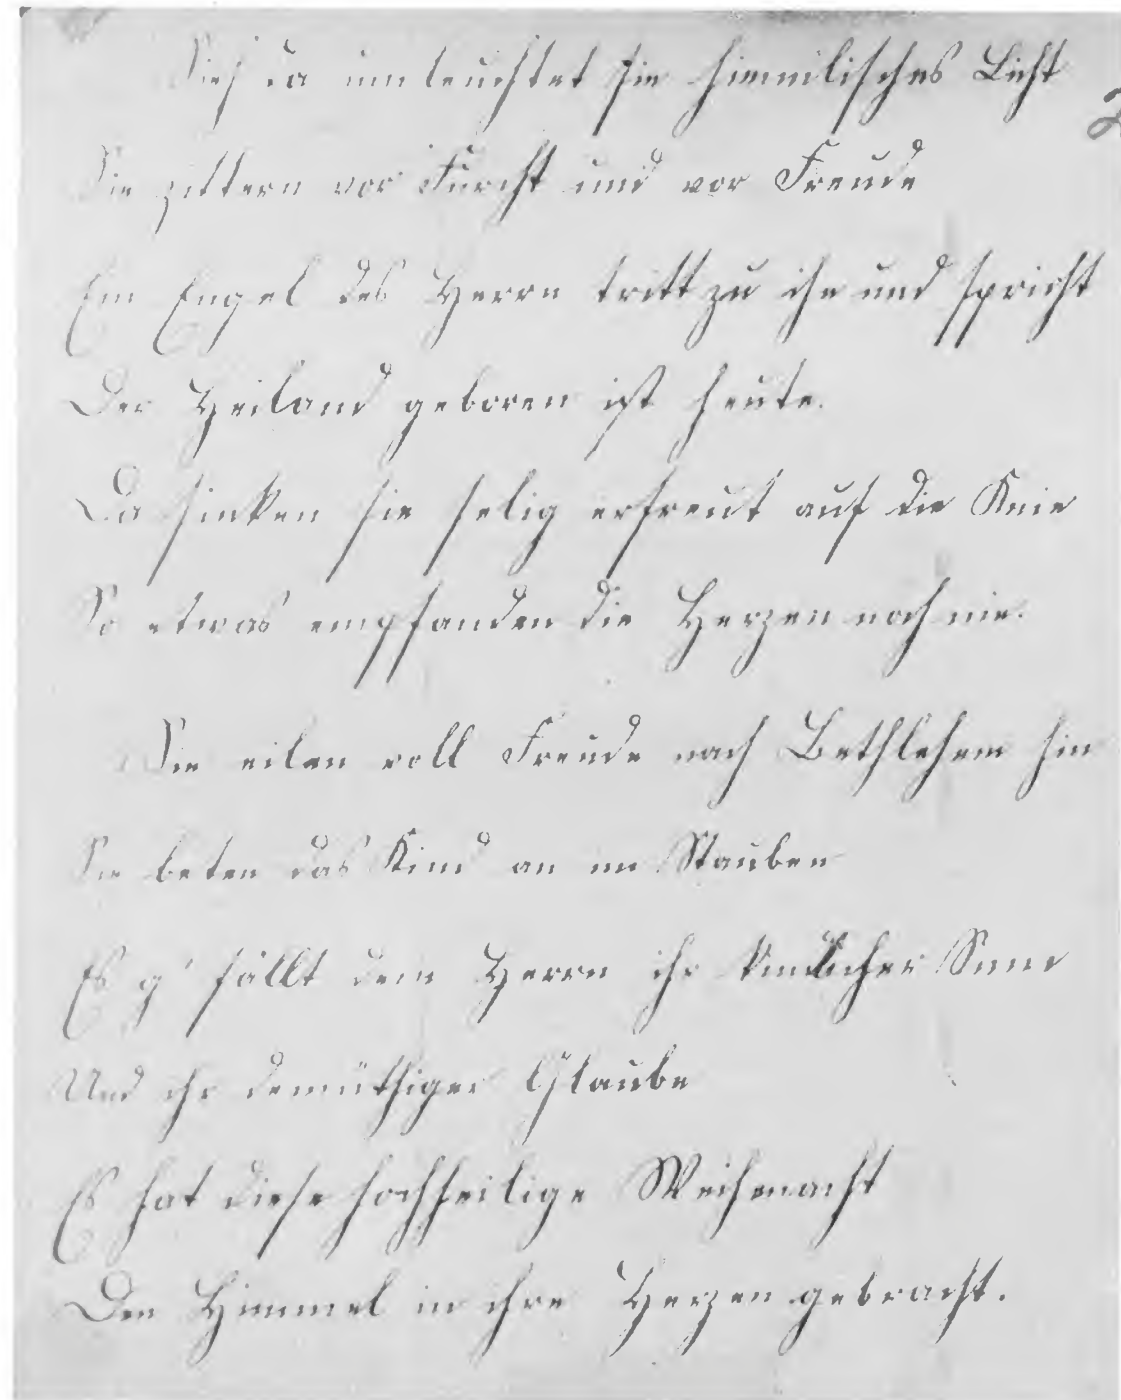 Sieh da umleuchtet sie himmlisches Licht
Sie zittern vor Furcht und vor Freude
Ein Engel des Herrn tritt zu ihn und spricht
Der Heiland geboren ist heute.
Da sinken sie selig erfreut auf die Knie
So etwas empfanden die Herzen noch nie.
Sie eilen voll Freude nach Bethlehem hin
Sie beten das Kind an im Stauben
Es g'fällt dem Herrn ihr kindlicher Sinn
Und ihr demüthiger Glaube
Es hat diese hochheilige Weihenacht
Den Himmel in ihre Herzen gebracht.